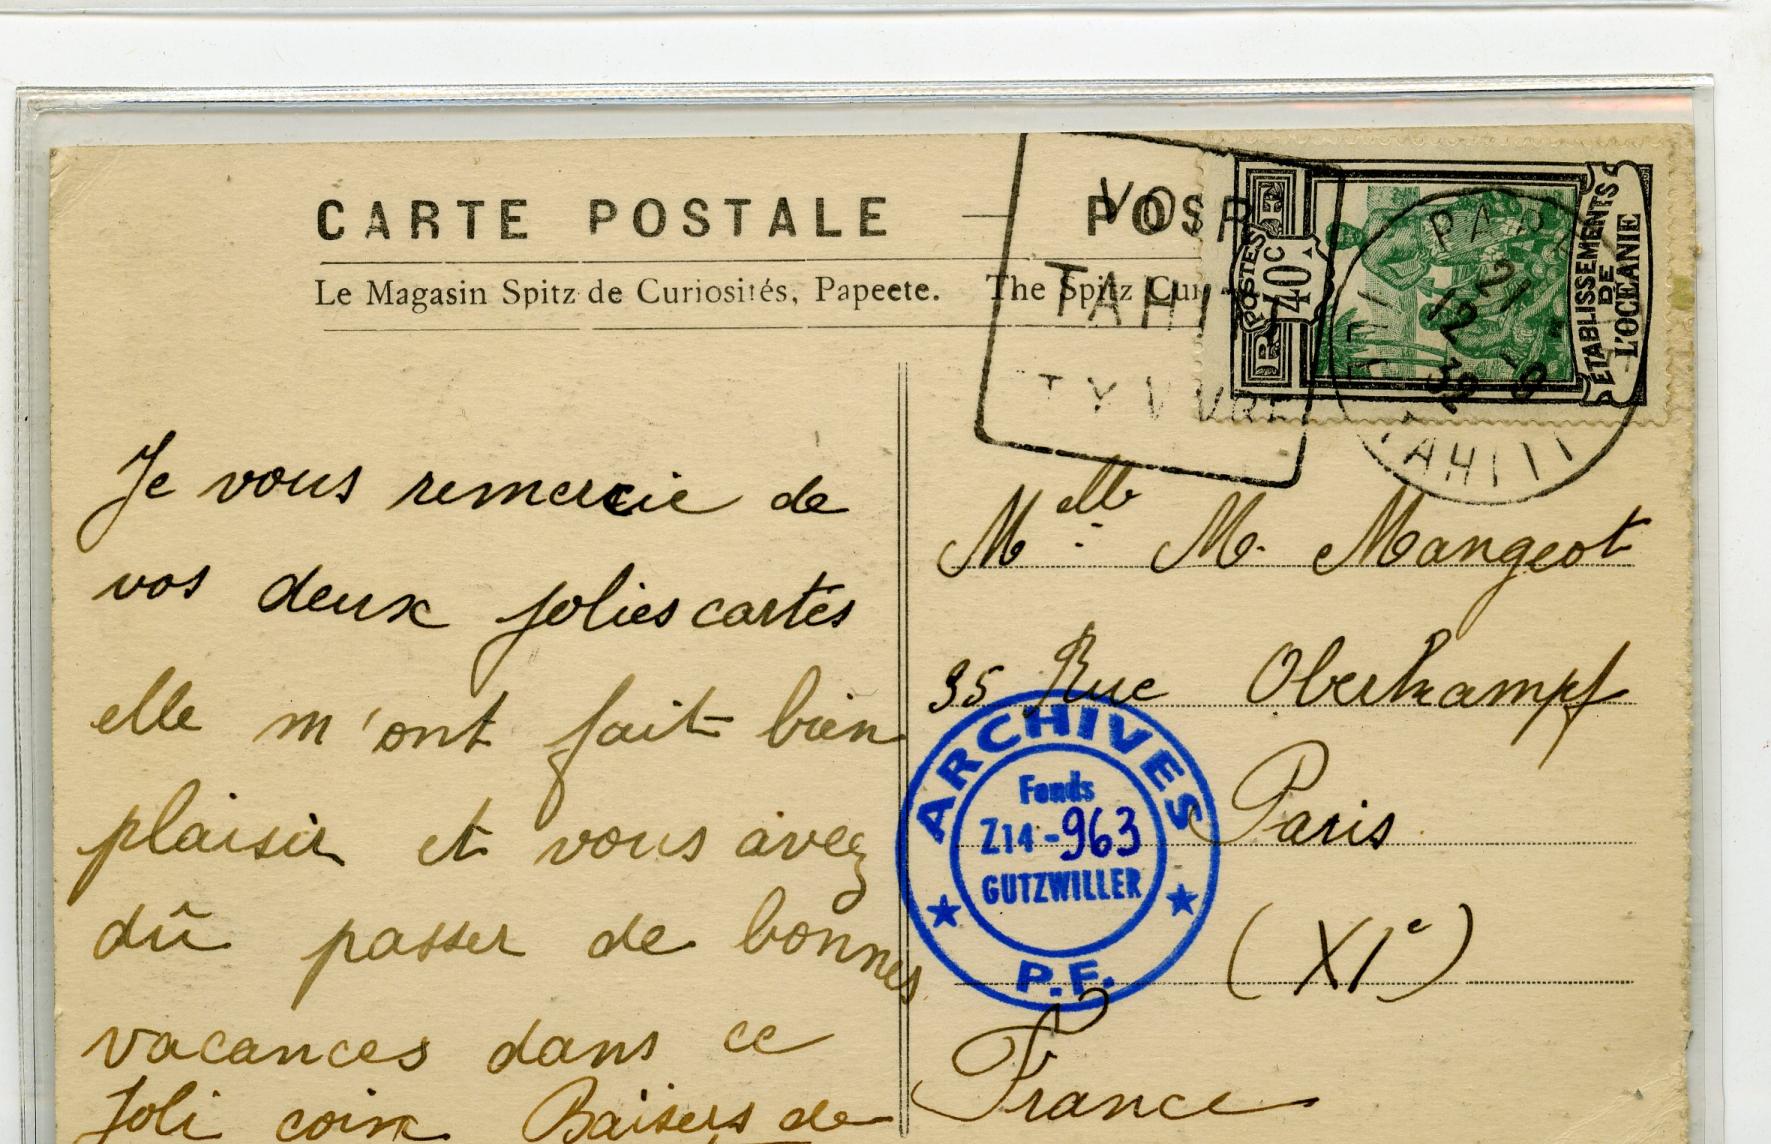 CARTE POSTALE — POS
Le Magasin Spitz de Curiosités, Papeete. The Spitz Cur
VOIR
TAHI
T Y VIVRE
POSTES
40c
RF
ÉTABLISSEMENTS
DE
L'OCÉANIE
PAPE
21
12
32
TAHITI
Je vous remercie de
vos deux jolies cartes
elle m'ont fait bien
plaisir et vous avez
dû passer de bonnes
vacances dans ce
Joli coin Baisers de
Melle M. Mangeot
35 Rue Oberkampf
Paris
(XIe)
France
ARCHIVES
Fonds
Z14-963
GUTZWILLER
P.F.